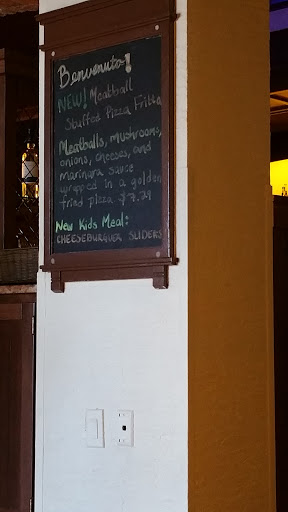 Benvenuto!
NEW! Meatball
Stuffed Pizza Fritta
Meatballs, mushrooms,
onions, cheeses, and
marinara sauce
wrapped in a golden
fried pizza $7.29
New Kids Meal:
CHEESEBURGUER SLIDERS